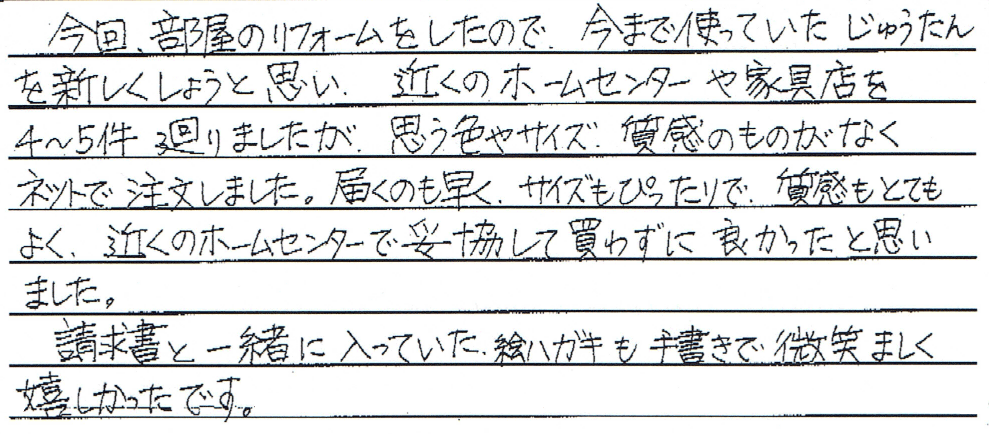 今回、部屋のリフォームをしたので、今まで使っていたじゅうたん
を新しくしようと思い、近くのホームセンターや家具店を
4〜5件廻りましたが、思う色やサイズ、質感のものがなく
ネットで注文しました。届くのも早く、サイズもぴったりで、質感もとても
よく、近くのホームセンターで妥協して買わずに良かったと思い
ました。
請求書と一緒に入っていた、絵ハガキも手書きで微笑ましく
嬉しかったです。